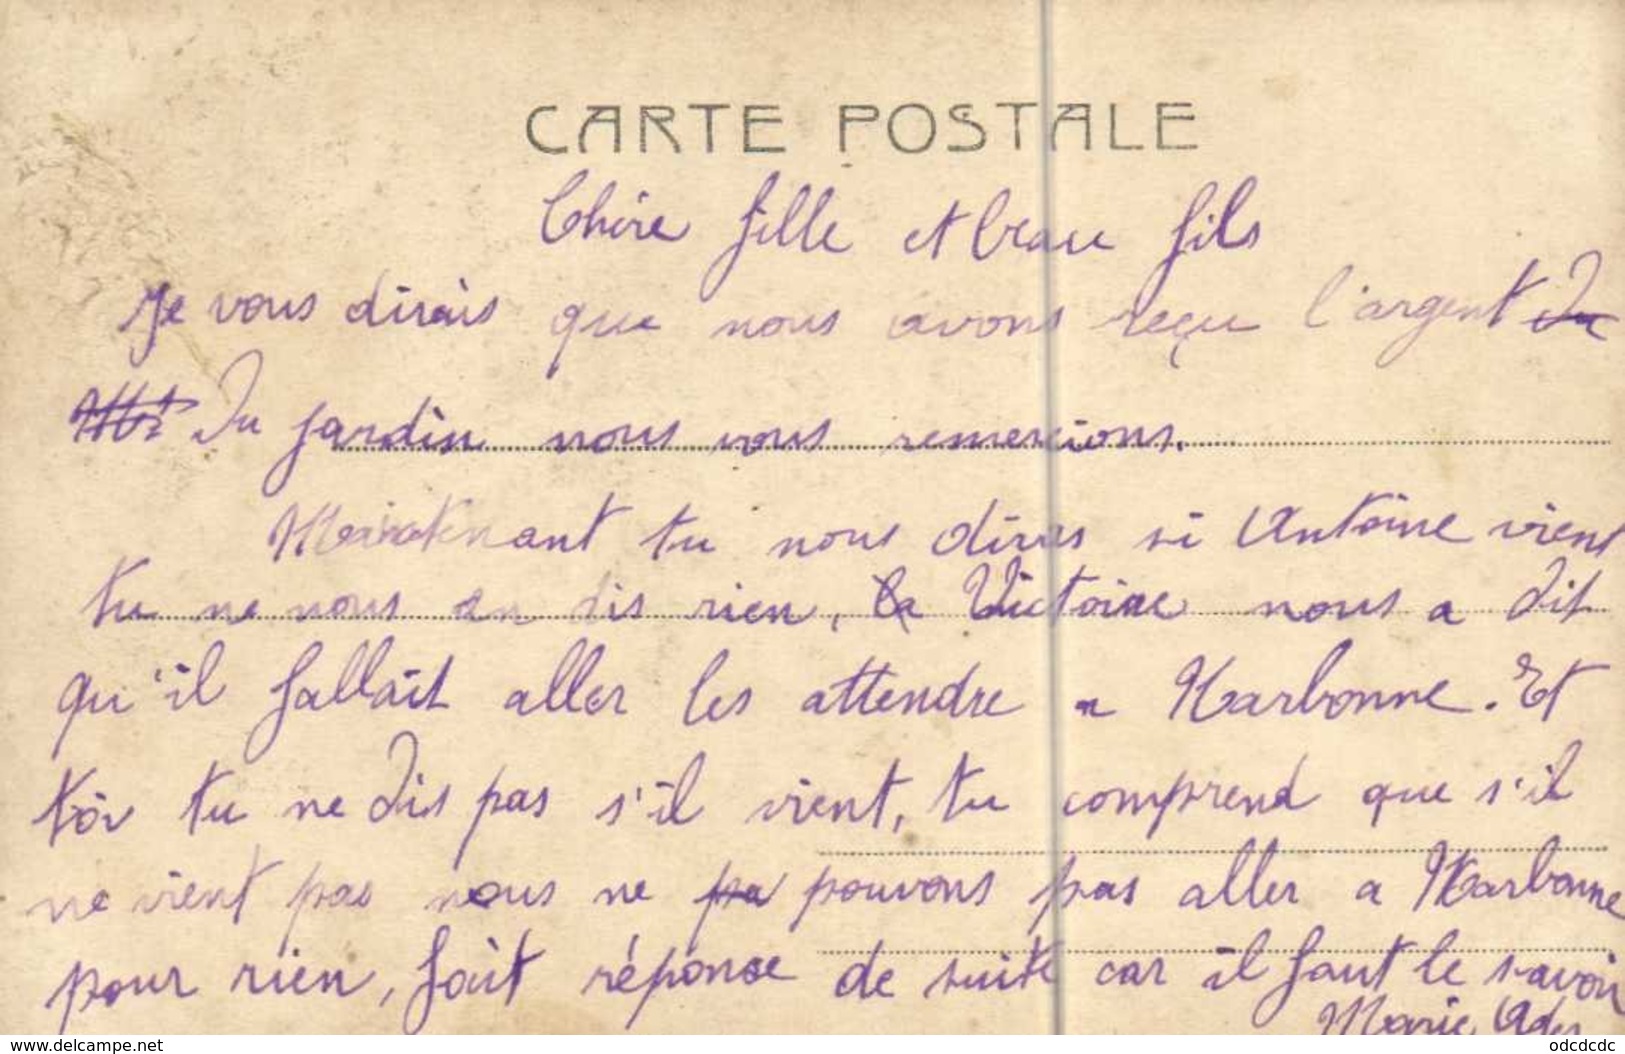 CARTE POSTALE
Chère fille et beau fils
Je vous dirais que nous avons reçu l'argent du
du jardin nous vous remercions.
Maintenant tu nous diras si Antoine vient
tu ne nous en dis rien, la Victoire nous a dit
qu'il fallait aller les attendre a Narbonne. Et
toi tu ne dis pas s'il vient, tu comprend que s'il
ne vient pas nous ne pa pouvons pas aller a Narbonne
pour rien, fait réponse de suite car il faut le savoir
Marie
delcampe.net
odcdcdc